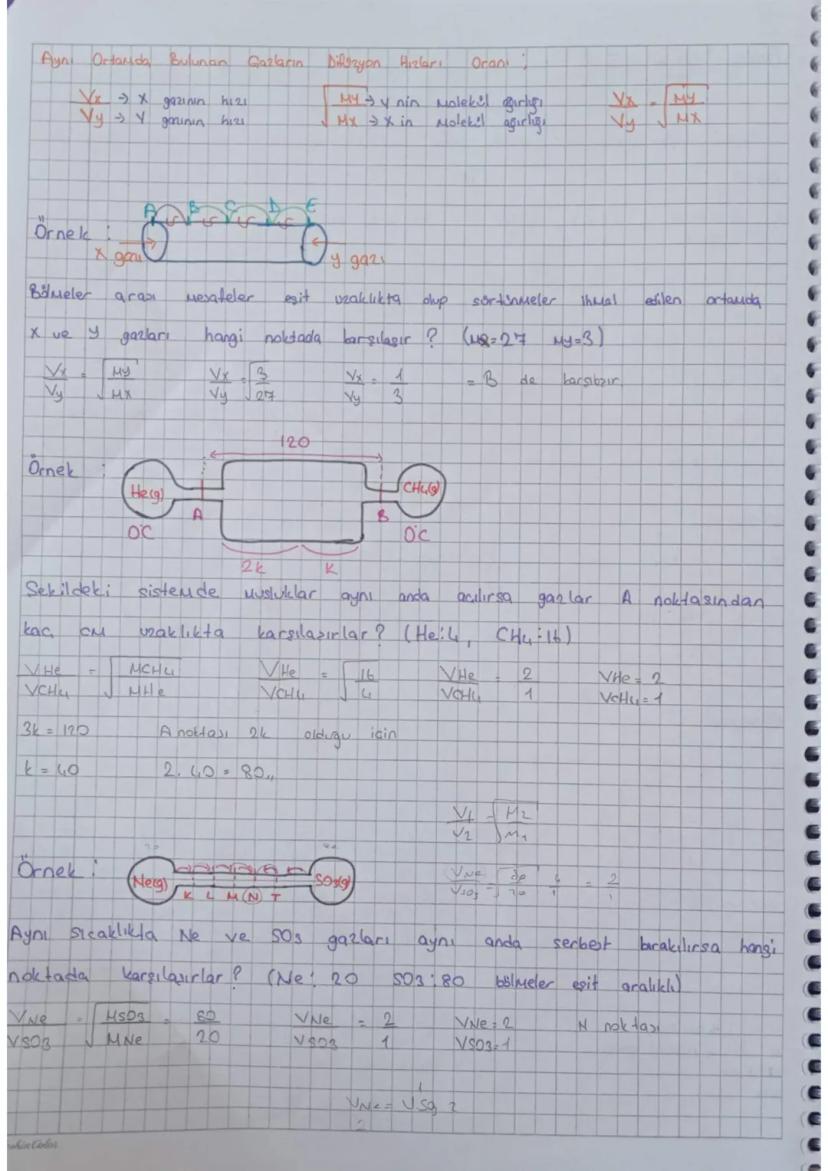 Aynı Ortamda Bulunan Gazların Difüzyon Hızları Oranı ;
Vx → X gazının hızı
Vy → Y gazının hızı
√ My → Y nin Molekül ağırlığı
Mx → X in Molekül ağırlığı
Vx / Vy = √ My / Mx
A B C D E
Örnek :
x gazı
y gazı
Bölmeler arası mesafeler eşit uzaklıkta olup sürtünmeler ihmal edilen ortamda
x ve y gazları hangi noktada karşılaşır ? (Mx=27 My=3)
Vx / Vy = √ My / Mx Vx / Vy = √ 3 / 27 Vx / Vy = 1 / 3 = B de karşılaşır
120
Örnek :
He(g) CH4(g)
A B
0°C 0°C
2k k
Şekildeki sistemde musluklar aynı anda açılırsa gazlar A noktasından
kaç cm uzaklıkta karşılaşırlar ? (He:4, CH4:16)
VHe / VCH4 = √ MCH4 / MHe VHe / VCH4 = √ 16 / 4 VHe / VCH4 = 2 / 1 VHe = 2
VCH4 = 1
3k = 120 A noktası 2k olduğu için
k = 40 2.40 = 80,,
V1 / V2 = √ M2 / M1
Örnek :
Ne(g) SO3(g)
K L M N T
VNe / VSO3 = 2
Aynı sıcaklıkta Ne ve SO3 gazları aynı anda serbest bırakılırsa hangi
noktada karşılaşırlar ? (Ne: 20 SO3:80 bölmeler eşit aralıklı)
VNe / VSO3 = √ MSO3 / MNe = 80 / 20 VNe / VSO3 = 2 / 1 VNe = 2 N noktası
VSO3=1